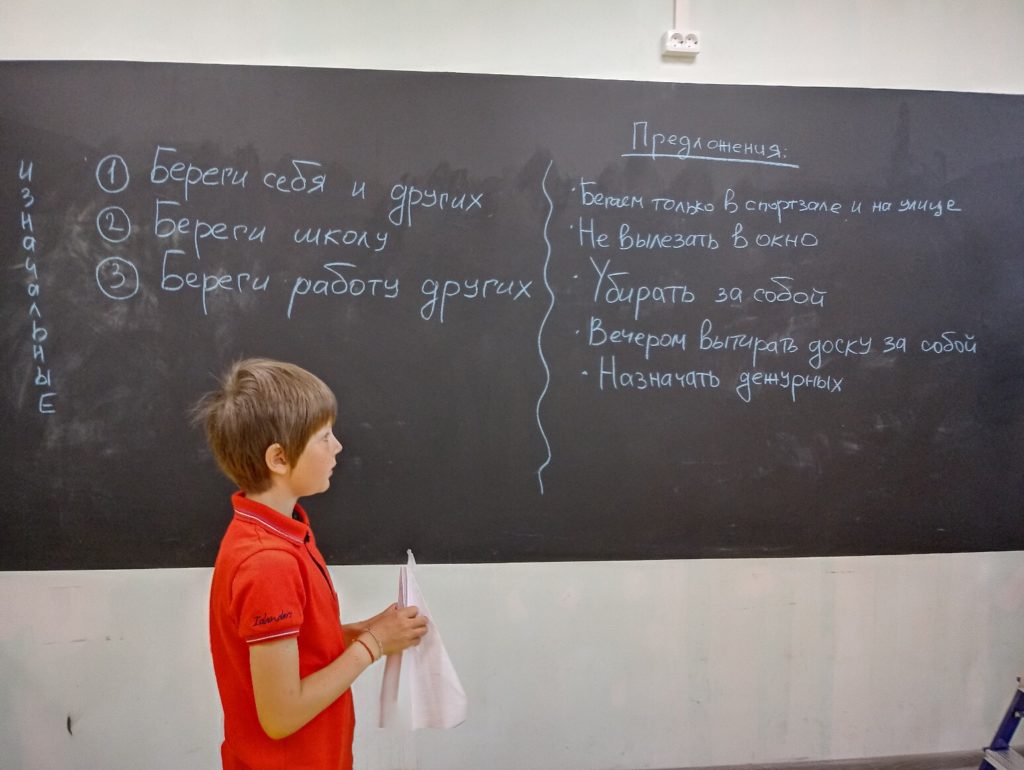 Изначальные
① Береги себя и других
② Береги школу
③ Береги работу других
Предложения:
· Бегаем только в спортзале и на улице
· Не вылезать в окно
· Убирать за собой
· Вечером вытирать доску за собой
· Назначать дежурных